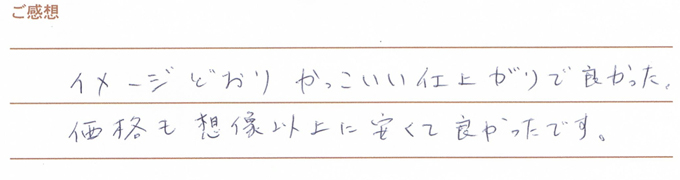 ご感想
イメージどおりかっこいい仕上がりで良かった。
価格も想像以上に安くて良かったです。